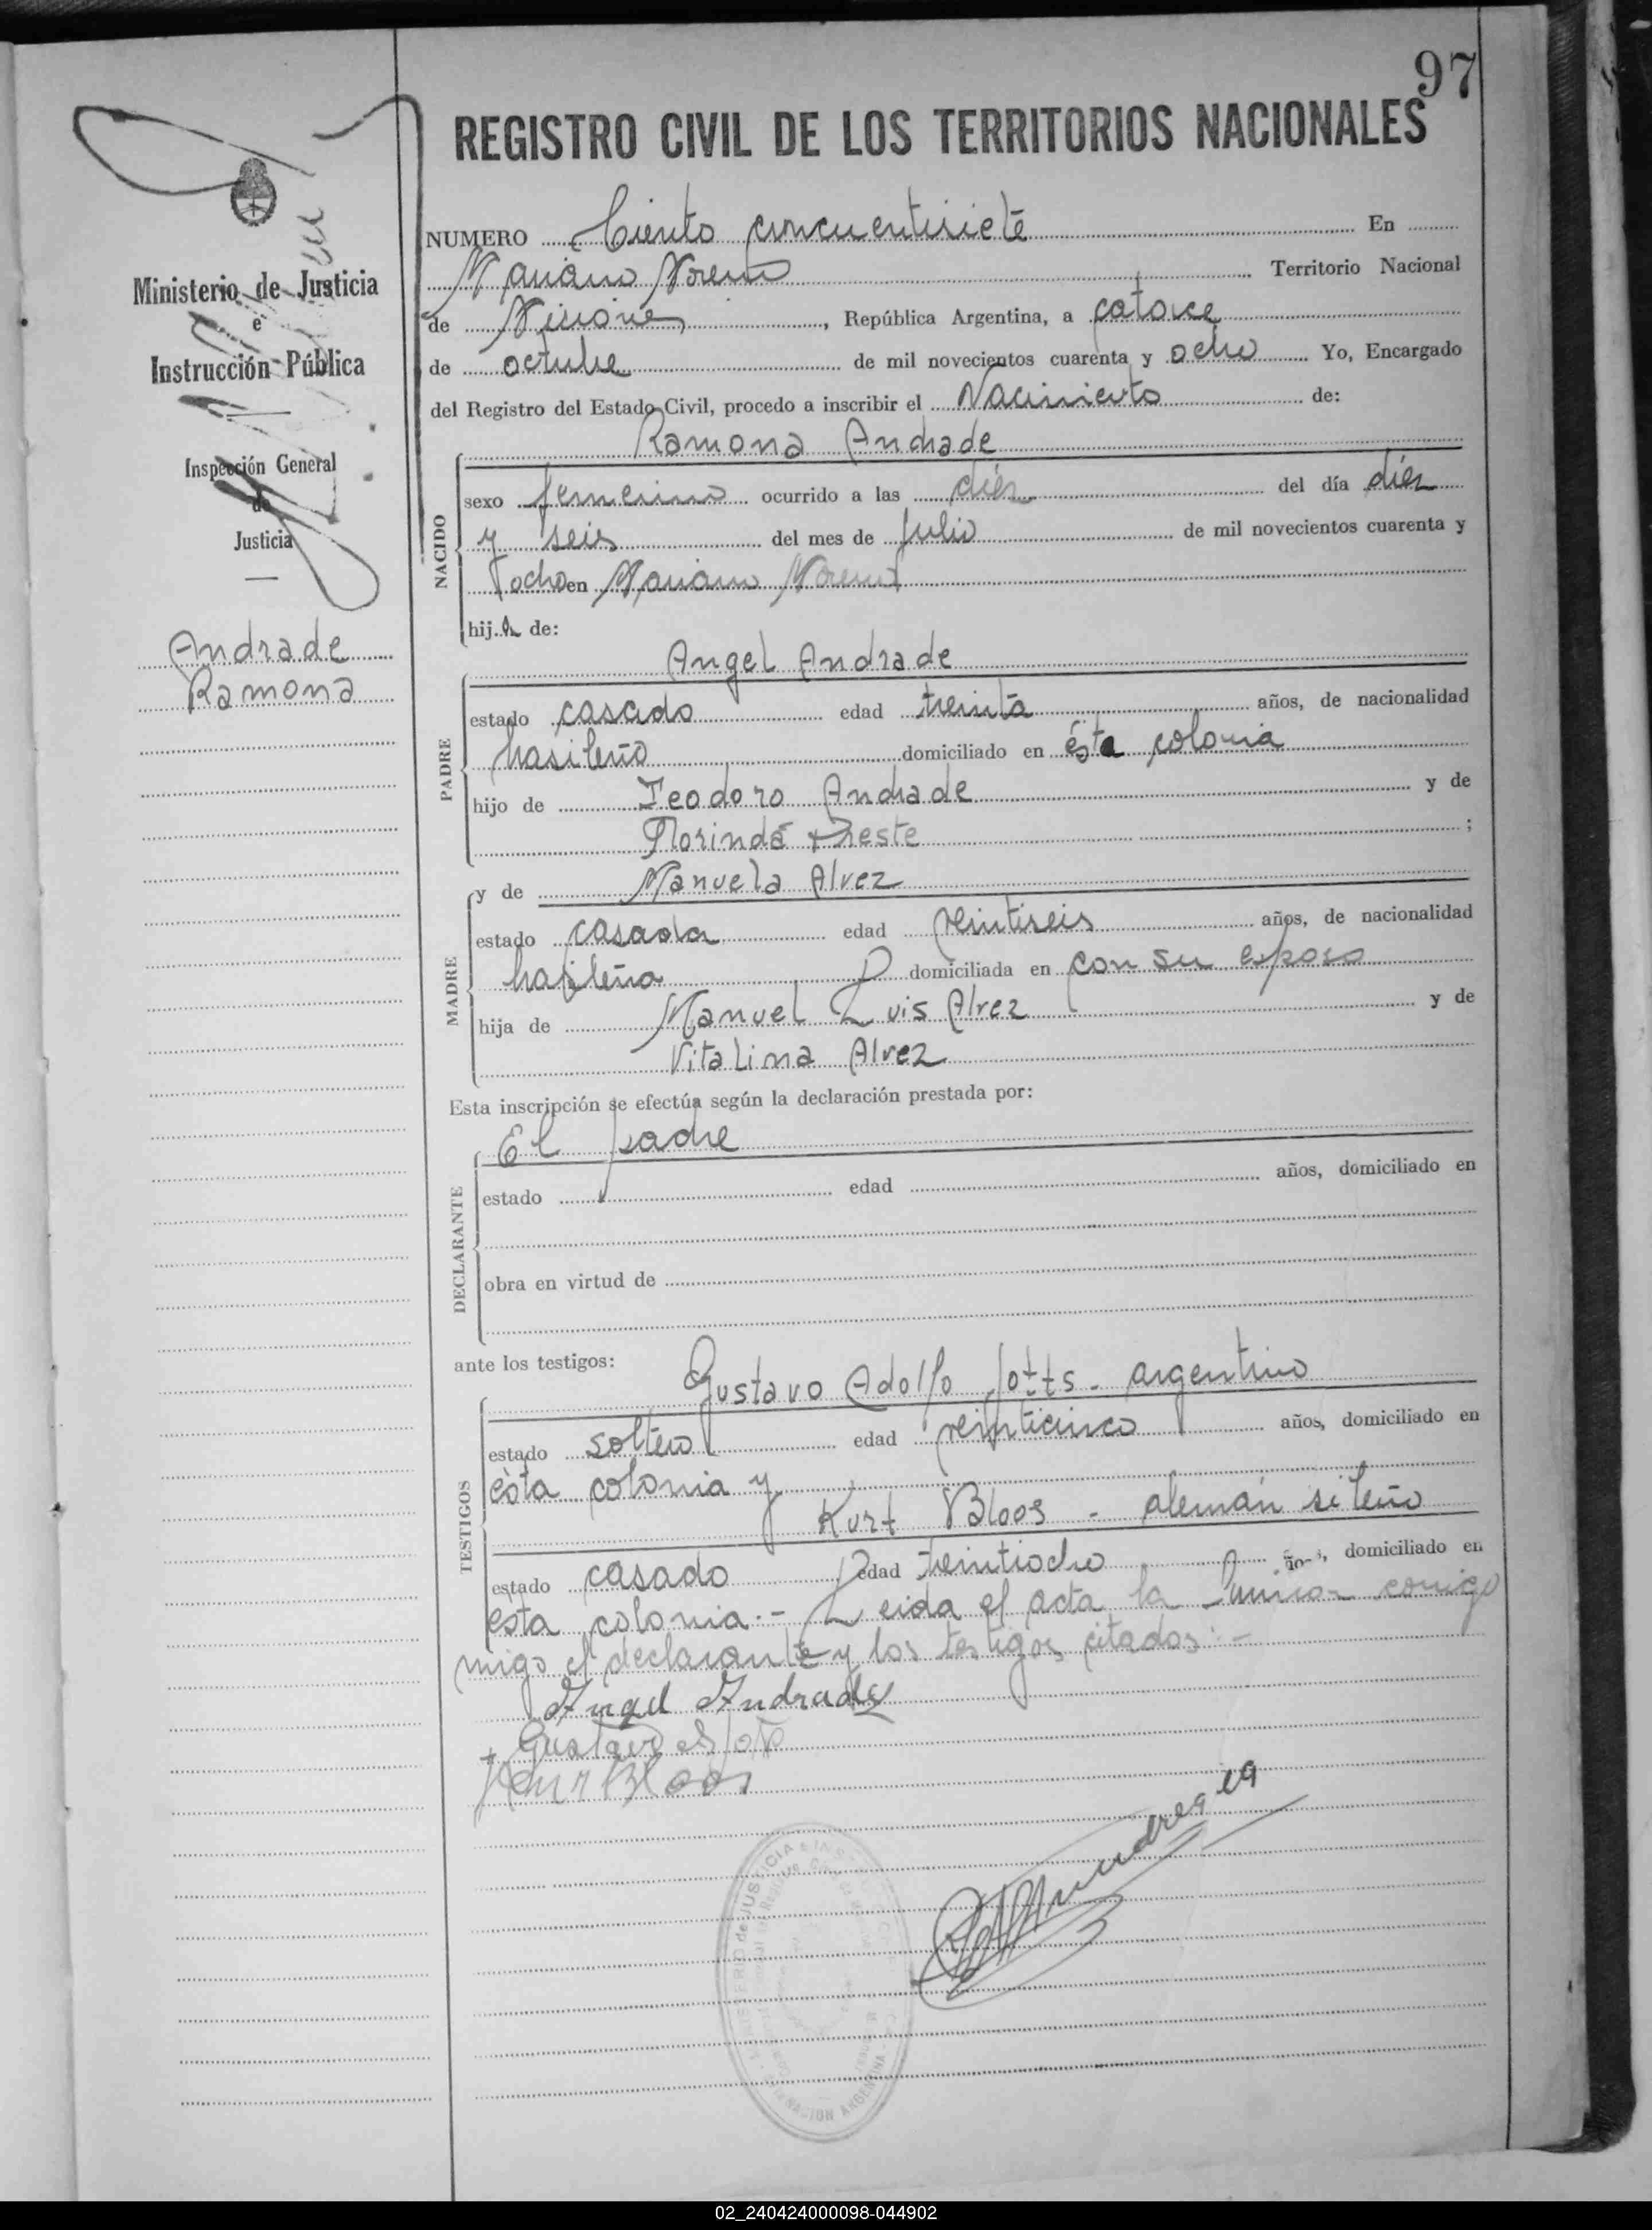 97
REGISTRO CIVIL DE LOS TERRITORIOS NACIONALES
Ministerio de Justicia
e
Instrucción Pública
Inspección General
de
Justicia
Andrade
Ramona
NUMERO Ciento cincuentisiete En
Mariano Moreno Territorio Nacional
de Misiones, República Argentina, a catorce
de octubre de mil novecientos cuarenta y ocho Yo, Encargado
del Registro del Estado Civil, procedo a inscribir el Nacimiento de:
Ramona Andrade
NACIDO
sexo femenino ocurrido a las diéz del día diéz
y seis del mes de Julio de mil novecientos cuarenta y
ocho en Mariano Moreno
hija de:
Angel Andrade
PADRE
estado casado edad treinta años, de nacionalidad
brasileño domiciliado en ésta colonia
hijo de Teodoro Andrade y de
Florinda Preste ;
y de Manuela Alvez
MADRE
estado casada edad veintiseis años, de nacionalidad
brasileña domiciliada en con su esposo
hija de Manuel Luis Alvez y de
Vitalina Alvez
Esta inscripción se efectúa según la declaración prestada por:
El padre
DECLARANTE
estado edad años, domiciliado en
obra en virtud de
ante los testigos:
Gustavo Adolfo - argentino
TESTIGOS
estado soltero edad veinticinco años, domiciliado en
ésta colonia y
Kurt Bloos - alemán
estado casado edad treintiocho años, domiciliado en
esta colonia.- Leida el acta la
migo el declarante y los testigos citados:-
Angel Andrade
Gustavo
Kurt Bloos
MINISTERIO de JUSTICIA e
NACION ARGENTINA
02_240424000098-044902